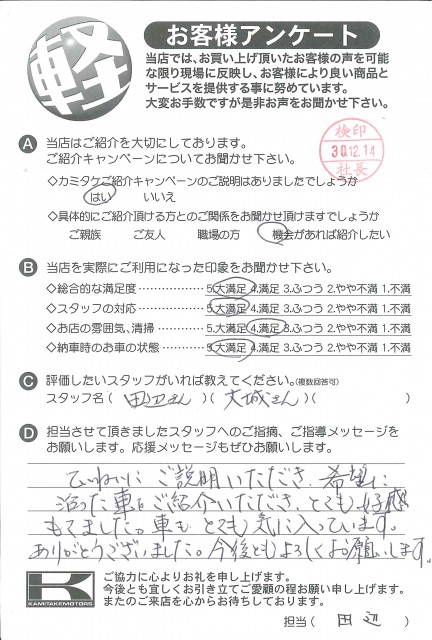 軽
お客様アンケート
当店では、お買い上げ頂いたお客様の声を可能
な限り現場に反映し、お客様により良い商品と
サービスを提供する事に努めています。
大変お手数ですが是非お声をお聞かせ下さい。
A 当店はご紹介を大切にしております。
ご紹介キャンペーンについてお聞かせ下さい。
検印
30.12.14
社長
◇カミタケご紹介キャンペーンのご説明はありましたでしょうか
はい いいえ
◇具体的にご紹介頂ける方とのご関係をお聞かせ頂けますでしょうか
ご親族 ご友人 職場の方 機会があれば紹介したい
B 当店を実際にご利用になった印象をお聞かせ下さい。
◇総合的な満足度……………… 5.大満足 4.満足 3.ふつう 2.やや不満 1.不満
◇スタッフの対応……………… 5.大満足 4.満足 3.ふつう 2.やや不満 1.不満
◇お店の雰囲気、清掃………… 5.大満足 4.満足 3.ふつう 2.やや不満 1.不満
◇納車時のお車の状態………… 5.大満足 4.満足 3.ふつう 2.やや不満 1.不満
C 評価したいスタッフがいれば教えてください。(複数回答可)
スタッフ名 ( 田辺さん )( 大城さん )( )
D 担当させて頂きましたスタッフへのご指摘、ご指導メッセージを
お願いします。応援メッセージもぜひお願いします。
ていねいに ご説明いただき、希望に
沿った車をご紹介いただき、とても好感
もてました。車も とても気に入っています。
ありがとうございました。今後ともよろしくお願いします。
K
KAMITAKEMOTORS
ご協力に心よりお礼を申し上げます。
今後とも宜しくお引き立てご愛顧の程お願い申し上げます。
またのご来店を心からお待ちしております。
担当 ( 田辺 )